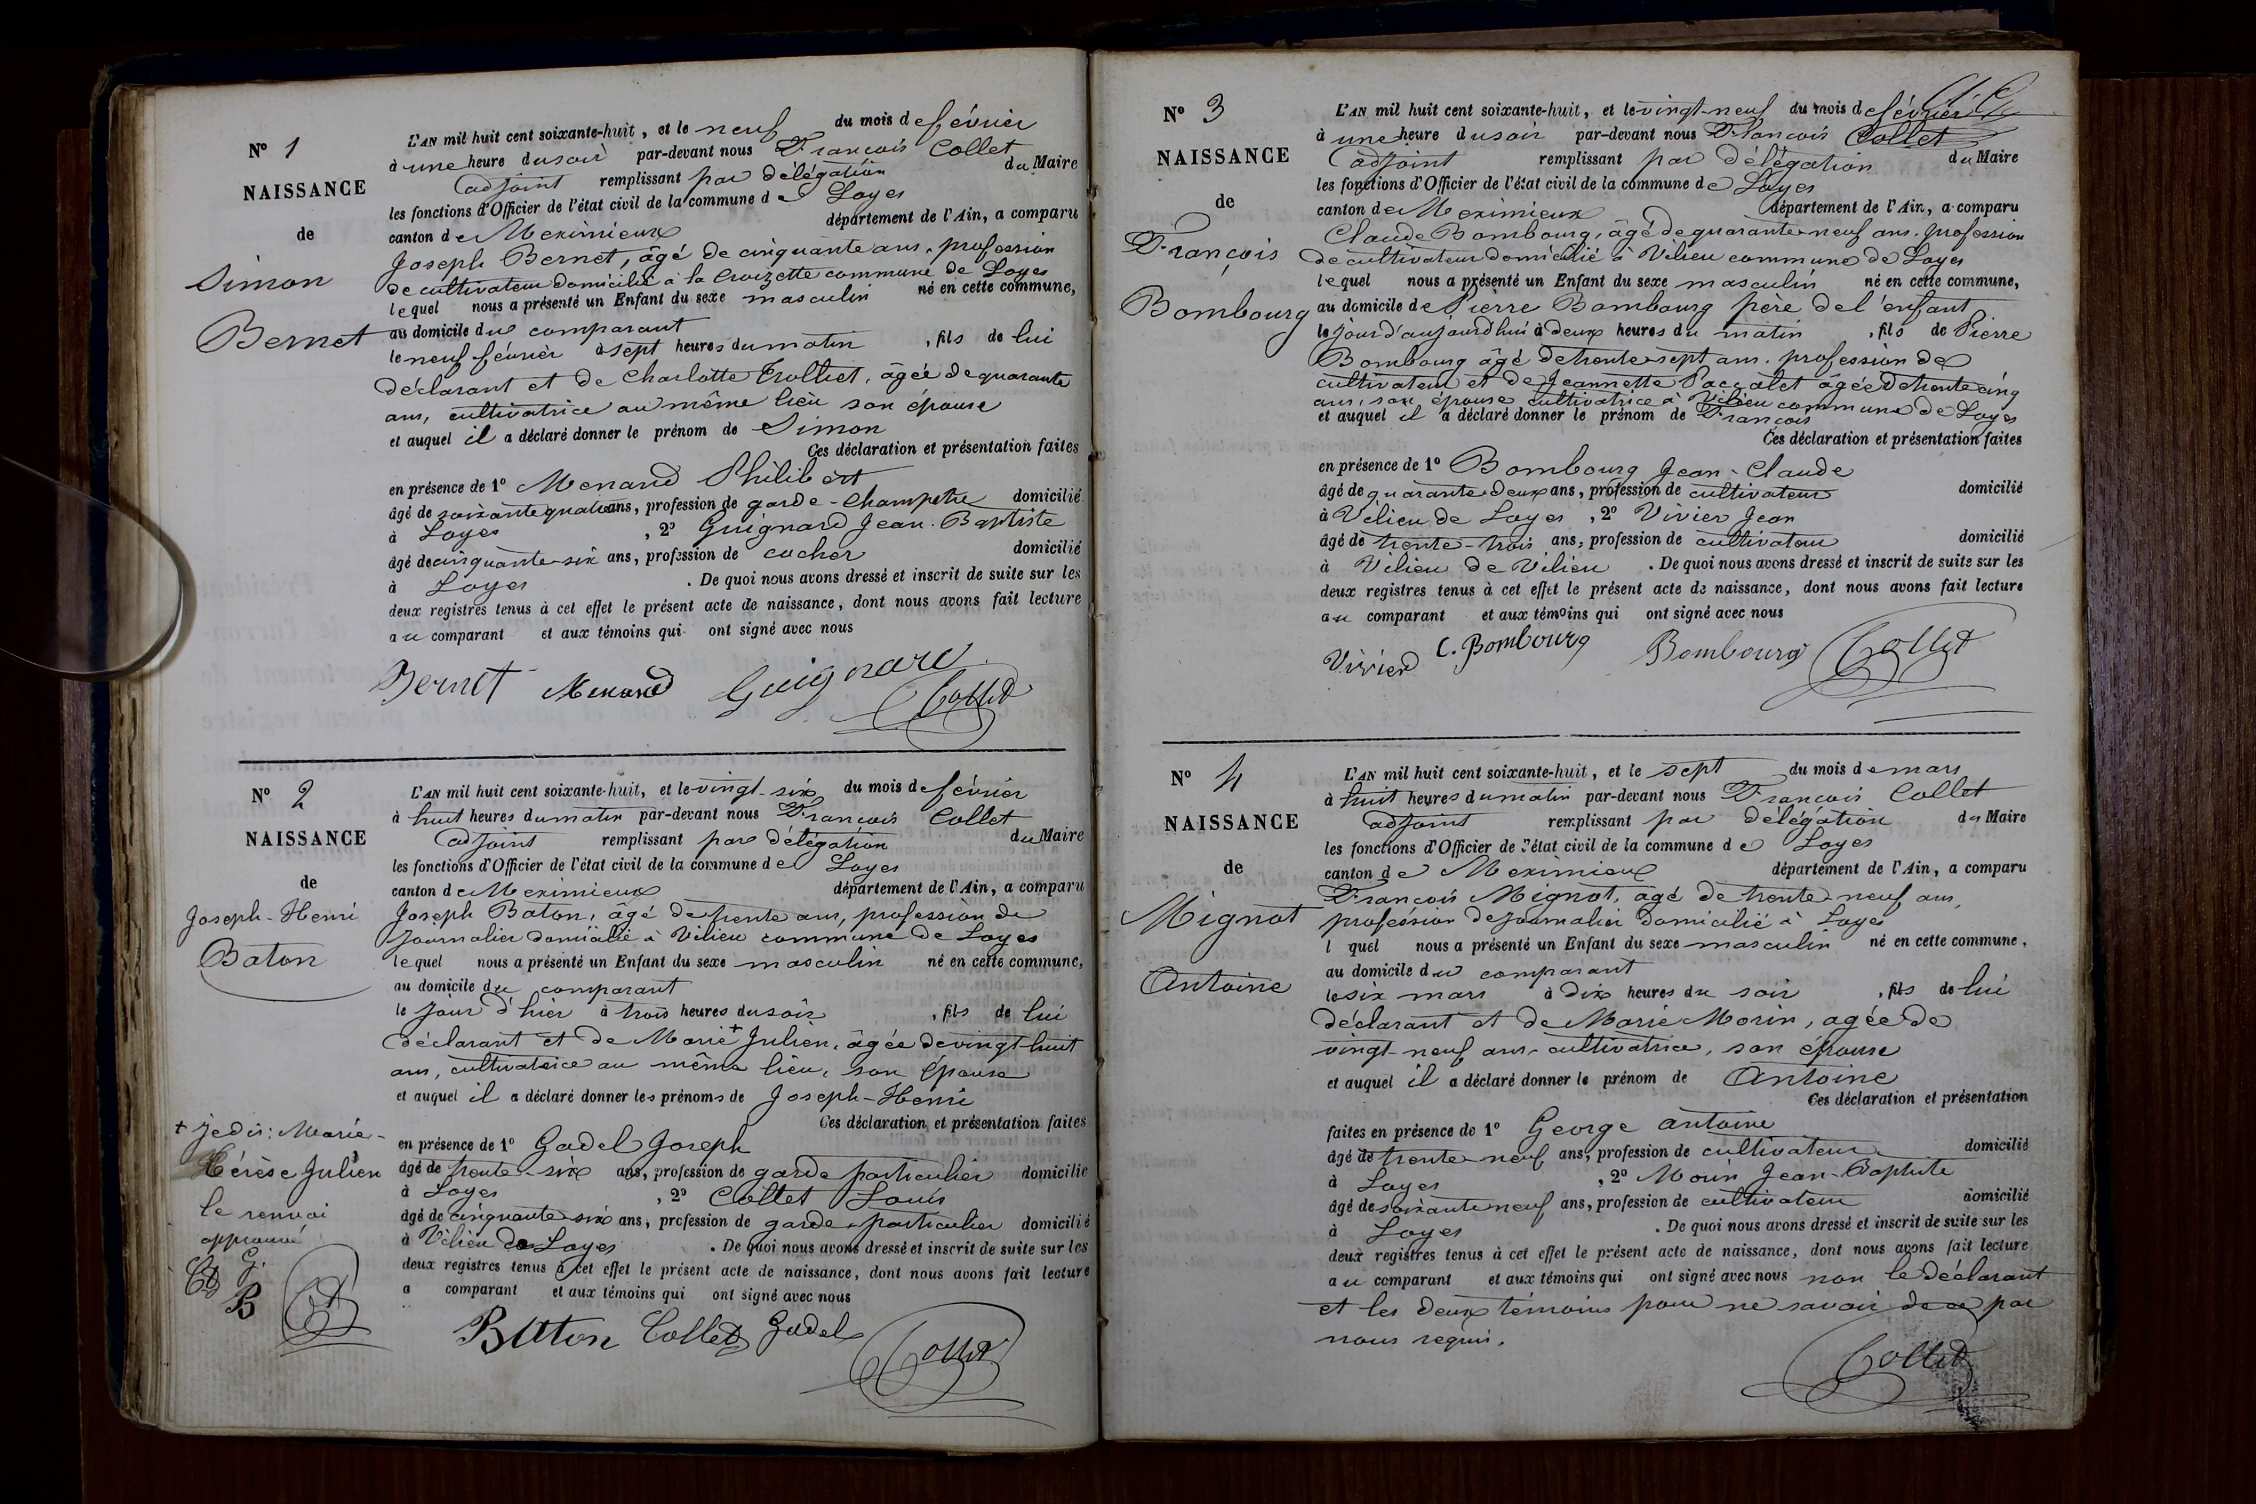 N° 1
NAISSANCE
de
Simon
Bernet
L'AN mil huit cent soixante-huit, et le neuf du mois de février
à une heure du soir par-devant nous François Collet
adjoint remplissant par délégation du Maire
les fonctions d'Officier de l'état civil de la commune de Loyes
canton de Meximieux département de l'Ain, a comparu
Joseph Bernet, âgé de cinquante ans, profession
de cultivateur domicilié à la Croizette commune de Loyes
lequel nous a présenté un Enfant du sexe masculin né en cette commune,
au domicile du comparant
le neuf février à sept heures du matin, fils de lui
déclarant et de Charlotte Trolliet, âgée de quarante
ans, cultivatrice au même lieu son épouse
et auquel il a déclaré donner le prénom de Simon
Ces déclaration et présentation faites
en présence de 1° Menand Philibert
âgé de soixante quatre ans, profession de garde-Champetre domicilié
à Loyes, 2° Guignard Jean-Baptiste
âgé de cinquante-six ans, profession de cocher domicilié
à Loyes. De quoi nous avons dressé et inscrit de suite sur les
deux registres tenus à cet effet le présent acte de naissance, dont nous avons fait lecture
au comparant et aux témoins qui ont signé avec nous
Bernet Menand Guignard
Collet
N° 2
NAISSANCE
de
Joseph-Henri
Baton
L'AN mil huit cent soixante-huit, et le vingt-six du mois de février
à huit heures du matin par-devant nous François Collet
adjoint remplissant par délégation du Maire
les fonctions d'Officier de l'état civil de la commune de Loyes
canton de Meximieux département de l'Ain, a comparu
Joseph Baton, âgé de trente ans, profession de
journalier domicilié à Vilieu commune de Loyes
lequel nous a présenté un Enfant du sexe masculin né en cette commune,
au domicile du comparant
le jour d'hier à trois heures du soir, fils de lui
déclarant et de Marie + Julien, âgée de vingt-huit
ans, cultivatrice au même lieu, son épouse
et auquel il a déclaré donner les prénoms de Joseph-Henri
Ces déclaration et présentation faites
en présence de 1° Gadel Joseph
âgé de trente-six ans, profession de garde particulier domicilié
à Loyes, 2° Collet Louis
âgé de cinquante-six ans, profession de garde-particulier domicilié
à Vilieu de Loyes. De quoi nous avons dressé et inscrit de suite sur les
deux registres tenus à cet effet le présent acte de naissance, dont nous avons fait lecture
a comparant et aux témoins qui ont signé avec nous
+ je dis: Marie-
Térèse Julien
le renvoi
approuvé
Baton Collet Gadel
Collet
N° 3
NAISSANCE
de
François
Bombourg
L'AN mil huit cent soixante-huit, et le vingt-neuf du mois de février
à une heure du soir par-devant nous François Collet
adjoint remplissant par délégation du Maire
les fonctions d'Officier de l'état civil de la commune de Loyes
canton de Meximieux département de l'Ain, a comparu
Claude Bombourg, âgé de quarante-neuf ans, profession
de cultivateur domicilié à Vilieu commune de Loyes
lequel nous a présenté un Enfant du sexe masculin né en cette commune,
au domicile de Pierre Bombourg père de l'enfant
le jour d'aujourd'hui à deux heures du matin, fils de Pierre
Bombourg âgé de trente-sept ans, profession de
cultivateur et de Jeannette Paccalet âgée de trente cinq
ans, son épouse cultivatrice à Vilieu commune de Loyes
et auquel il a déclaré donner le prénom de François
Ces déclaration et présentation faites
en présence de 1° Bombourg Jean-Claude
âgé de quarante-deux ans, profession de cultivateur domicilié
à Vilieu de Loyes, 2° Vivier Jean
âgé de trente-trois ans, profession de cultivateur domicilié
à Vilieu de Vilieu. De quoi nous avons dressé et inscrit de suite sur les
deux registres tenus à cet effet le présent acte de naissance, dont nous avons fait lecture
au comparant et aux témoins qui ont signé avec nous
Vivier C. Bombourg Bombourg Collet
N° 4
NAISSANCE
de
Mignot
Antoine
L'AN mil huit cent soixante-huit, et le sept du mois de mars
à huit heures du matin par-devant nous François Collet
adjoint remplissant par délégation du Maire
les fonctions d'Officier de l'état civil de la commune de Loyes
canton de Meximieux département de l'Ain, a comparu
François Mignot, âgé de trente-neuf ans,
profession de journalier domicilié à Loyes
l quel nous a présenté un Enfant du sexe masculin né en cette commune,
au domicile du comparant
le six mars à dix heures du soir, fils de lui
déclarant et de Marie Morin, agée de
vingt-neuf ans, cultivatrice, son épouse
et auquel il a déclaré donner le prénom de Antoine
Ces déclaration et présentation
faites en présence de 1° George antoine
âgé de trente-neuf ans, profession de cultivateur domicilié
à Loyes, 2° Morin Jean-Baptiste
âgé de soixante neuf ans, profession de cultivateur domicilié
à Loyes. De quoi nous avons dressé et inscrit de suite sur les
deux registres tenus à cet effet le présent acte de naissance, dont nous avons fait lecture
au comparant et aux témoins qui ont signé avec nous non le déclarant
et les deux témoins pour ne savoir de ce par
nous requis.
Collet